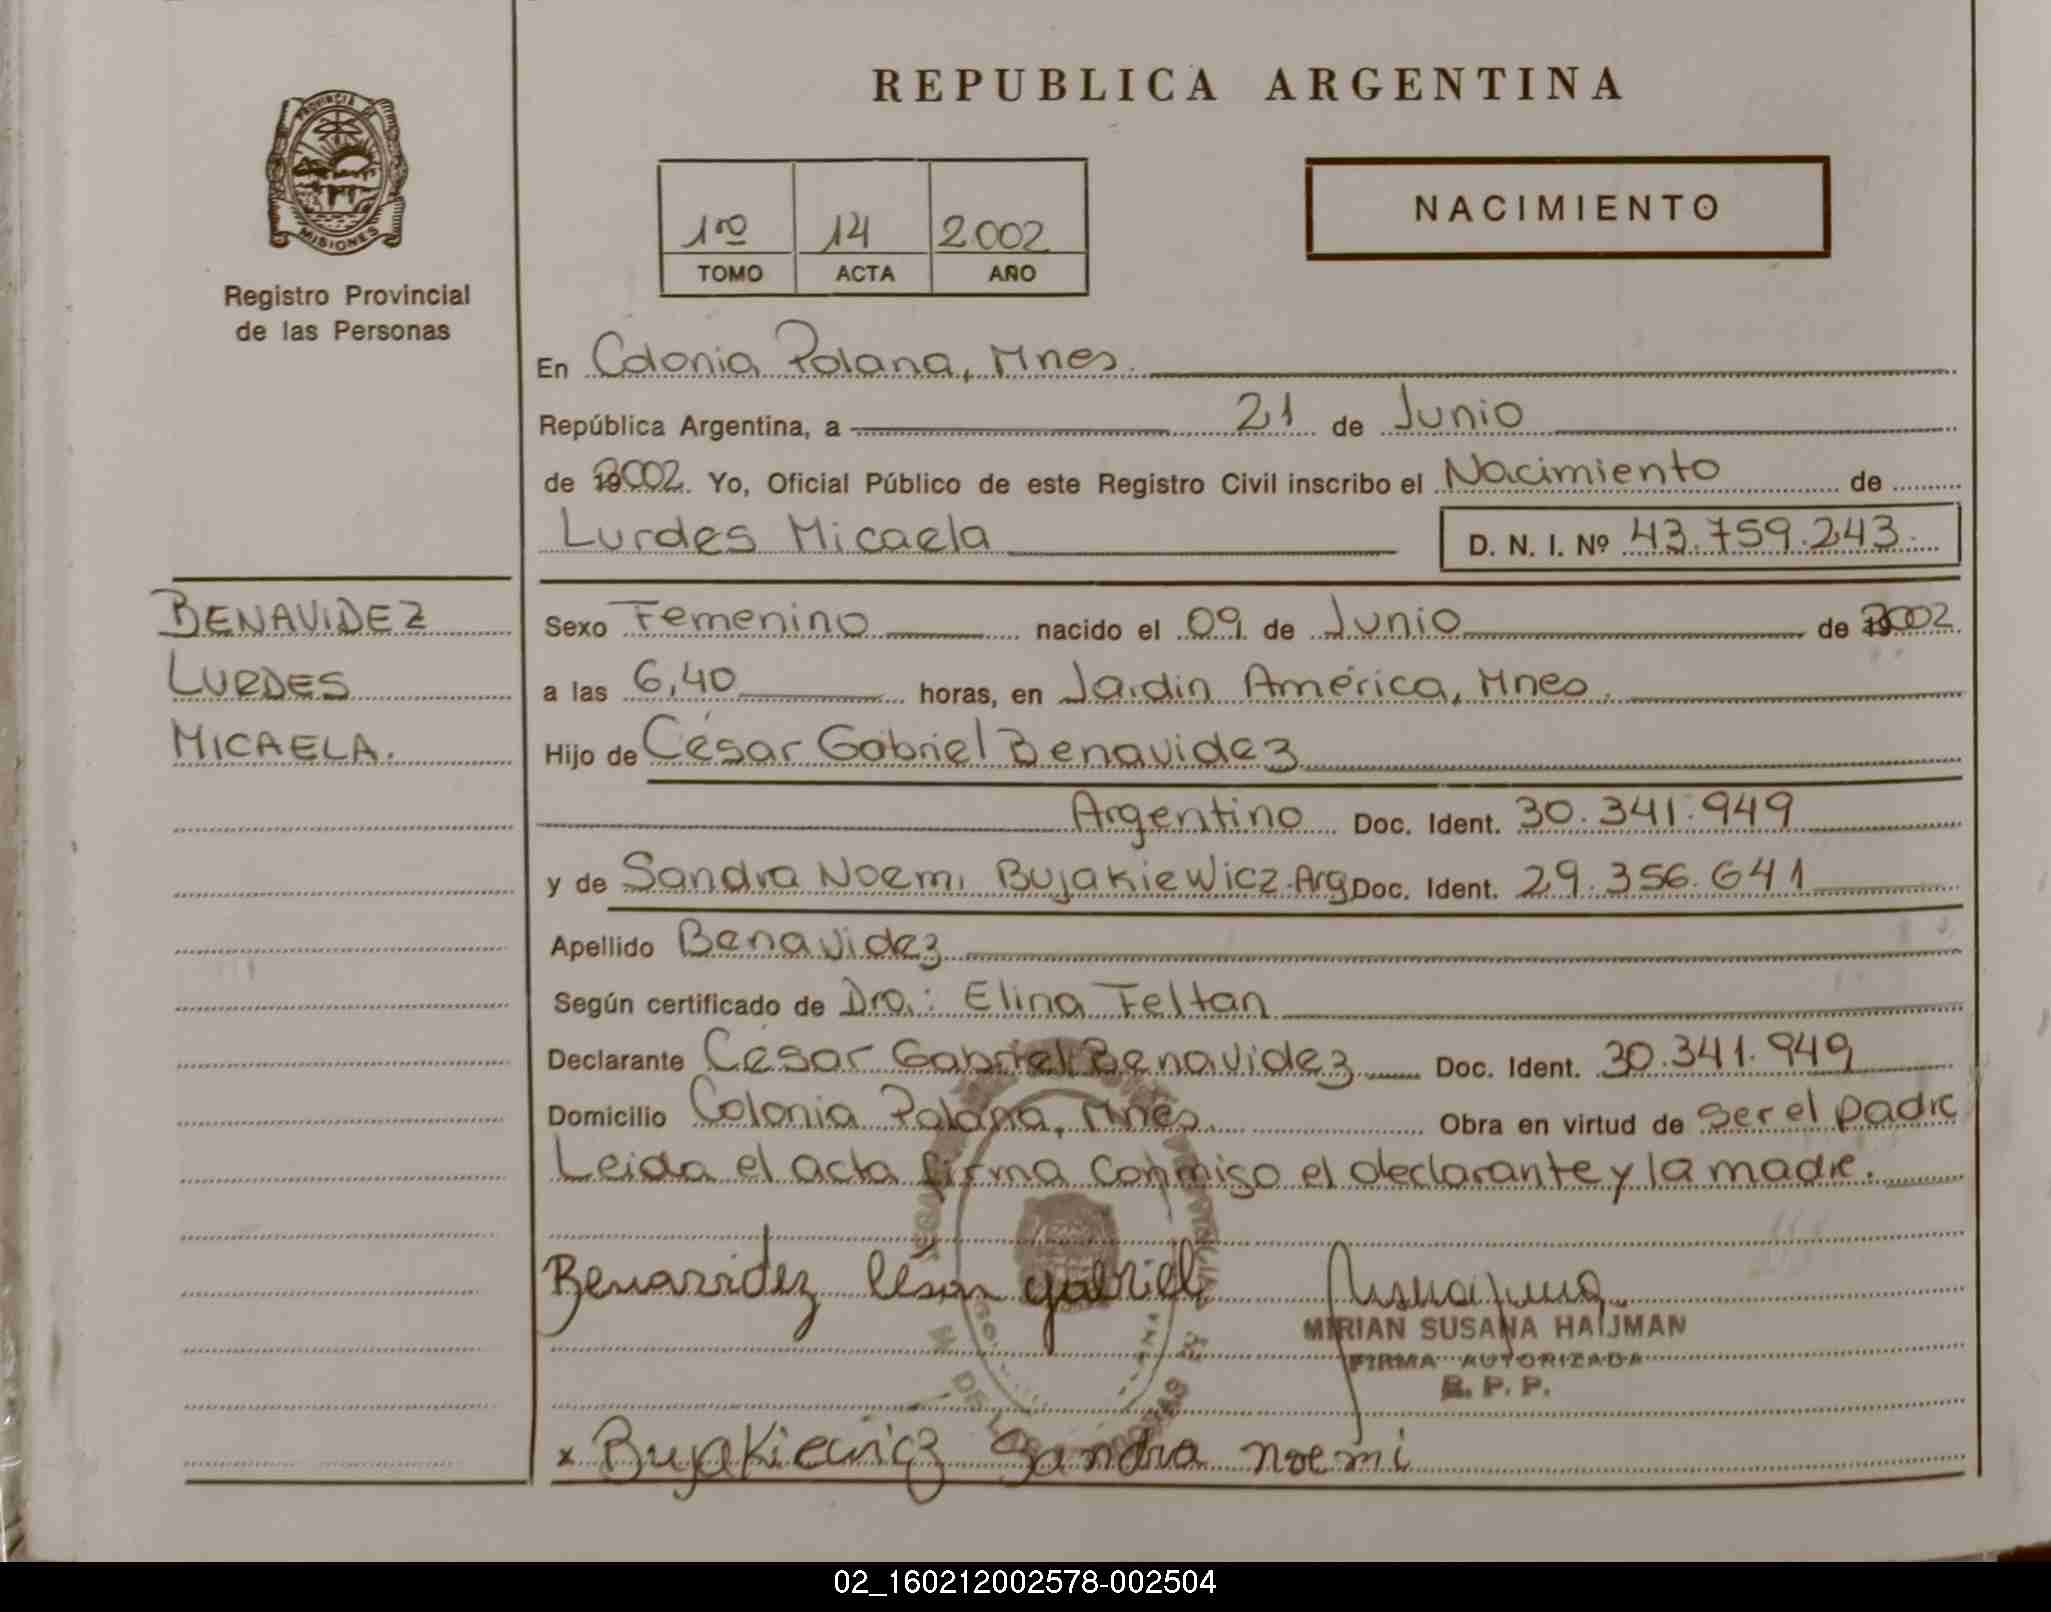 REPUBLICA ARGENTINA
PROVINCIA DE
MISIONES
Registro Provincial
de las Personas
1ro 14 2002
TOMO ACTA AÑO
NACIMIENTO
En Colonia Polana, Mnes.
República Argentina, a 21 de Junio
de 2002. Yo, Oficial Público de este Registro Civil inscribo el Nacimiento de
Lurdes Micaela D. N. I. Nº 43.759.243.
BENAVIDEZ
LURDES
MICAELA.
Sexo Femenino nacido el 09 de Junio de 2002
a las 6,40 horas, en Jardin América, Mnes.
Hijo de César Gabriel Benavidez
Argentino Doc. Ident. 30.341.949
y de Sandra Noemi Bujakiewicz. Arg Doc. Ident. 29.356.641
Apellido Benavidez
Según certificado de Dra.: Elina Feltan
Declarante César Gabriel Benavidez Doc. Ident. 30.341.949
Domicilio Colonia Polana, Mnes. Obra en virtud de ser el padre
Leida el acta firma conmigo el declarante y la madre.
Benavidez Cesar gabriel
MIRIAN SUSANA HAIJMAN
FIRMA AUTORIZADA
R. P. P.
x Bujakiewicz Sandra noemi
02_160212002578-002504